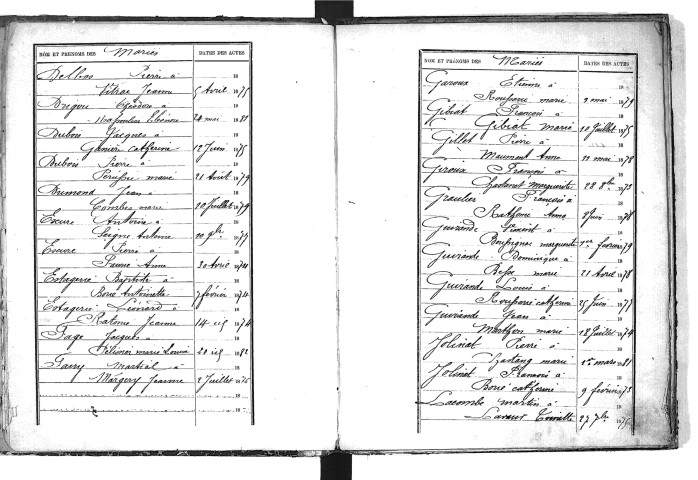 NOM ET PRÉNOMS DES Mariés DATES DES ACTES
Delbos Pierre à 18
Vitrac Jeanne 5 Avril 1875
Dregou Théodore à 18
Eléonore 24 mai 1881
Dubois Jacques à 18
Garnier catherine 12 Juin 1875
Dubois Pierre à 18
marie 21 Août 1879
Dumond Jean à 18
Combes marie 20 Juillet 1879
Escure Antoine à 18
Antoinne 1877
Escure Pierre à 18
Faure Anne 30 Avril 1874
Estagerie Baptiste à 18
Borie Antoinette 7 février 1874
Estagerie Léonard à 18
Ratonie Jeanne 14 1874
Fage Jacques à 18
marie Louise 20 1882
Faury Martial à 18
Margery Jeanne 2 Juillet 1875
18
NOM ET PRÉNOMS DES Mariés DATES DES ACTES
Garoux Etienne à 18
marie 3 mai 1879
Gibiat François à 18
Gibiat Marie 10 Juillet 1875
Gillet Pierre à 18
Maumont Anne 11 mai 1878
Giroux François à 18
Chastanet Marguerite 28 8bre 1873
Graulier François à 18
Anne 8 Juin 1878
Guirande Vincent à 18
marguerite 1er fevrier 1879
Guirande Dominique à 18
marie 21 Avril 1878
Guirande Louis à 18
catherine 25 Juin 1877
Guirande Jean à 18
Marthon marie 18 Juillet 1874
Jolinat Pierre à 18
marie 1er mars 1881
Jolinat François à 18
Borie catherine 9 février 1873
Lacombe martin à 18
Toinette 27 7bre 187